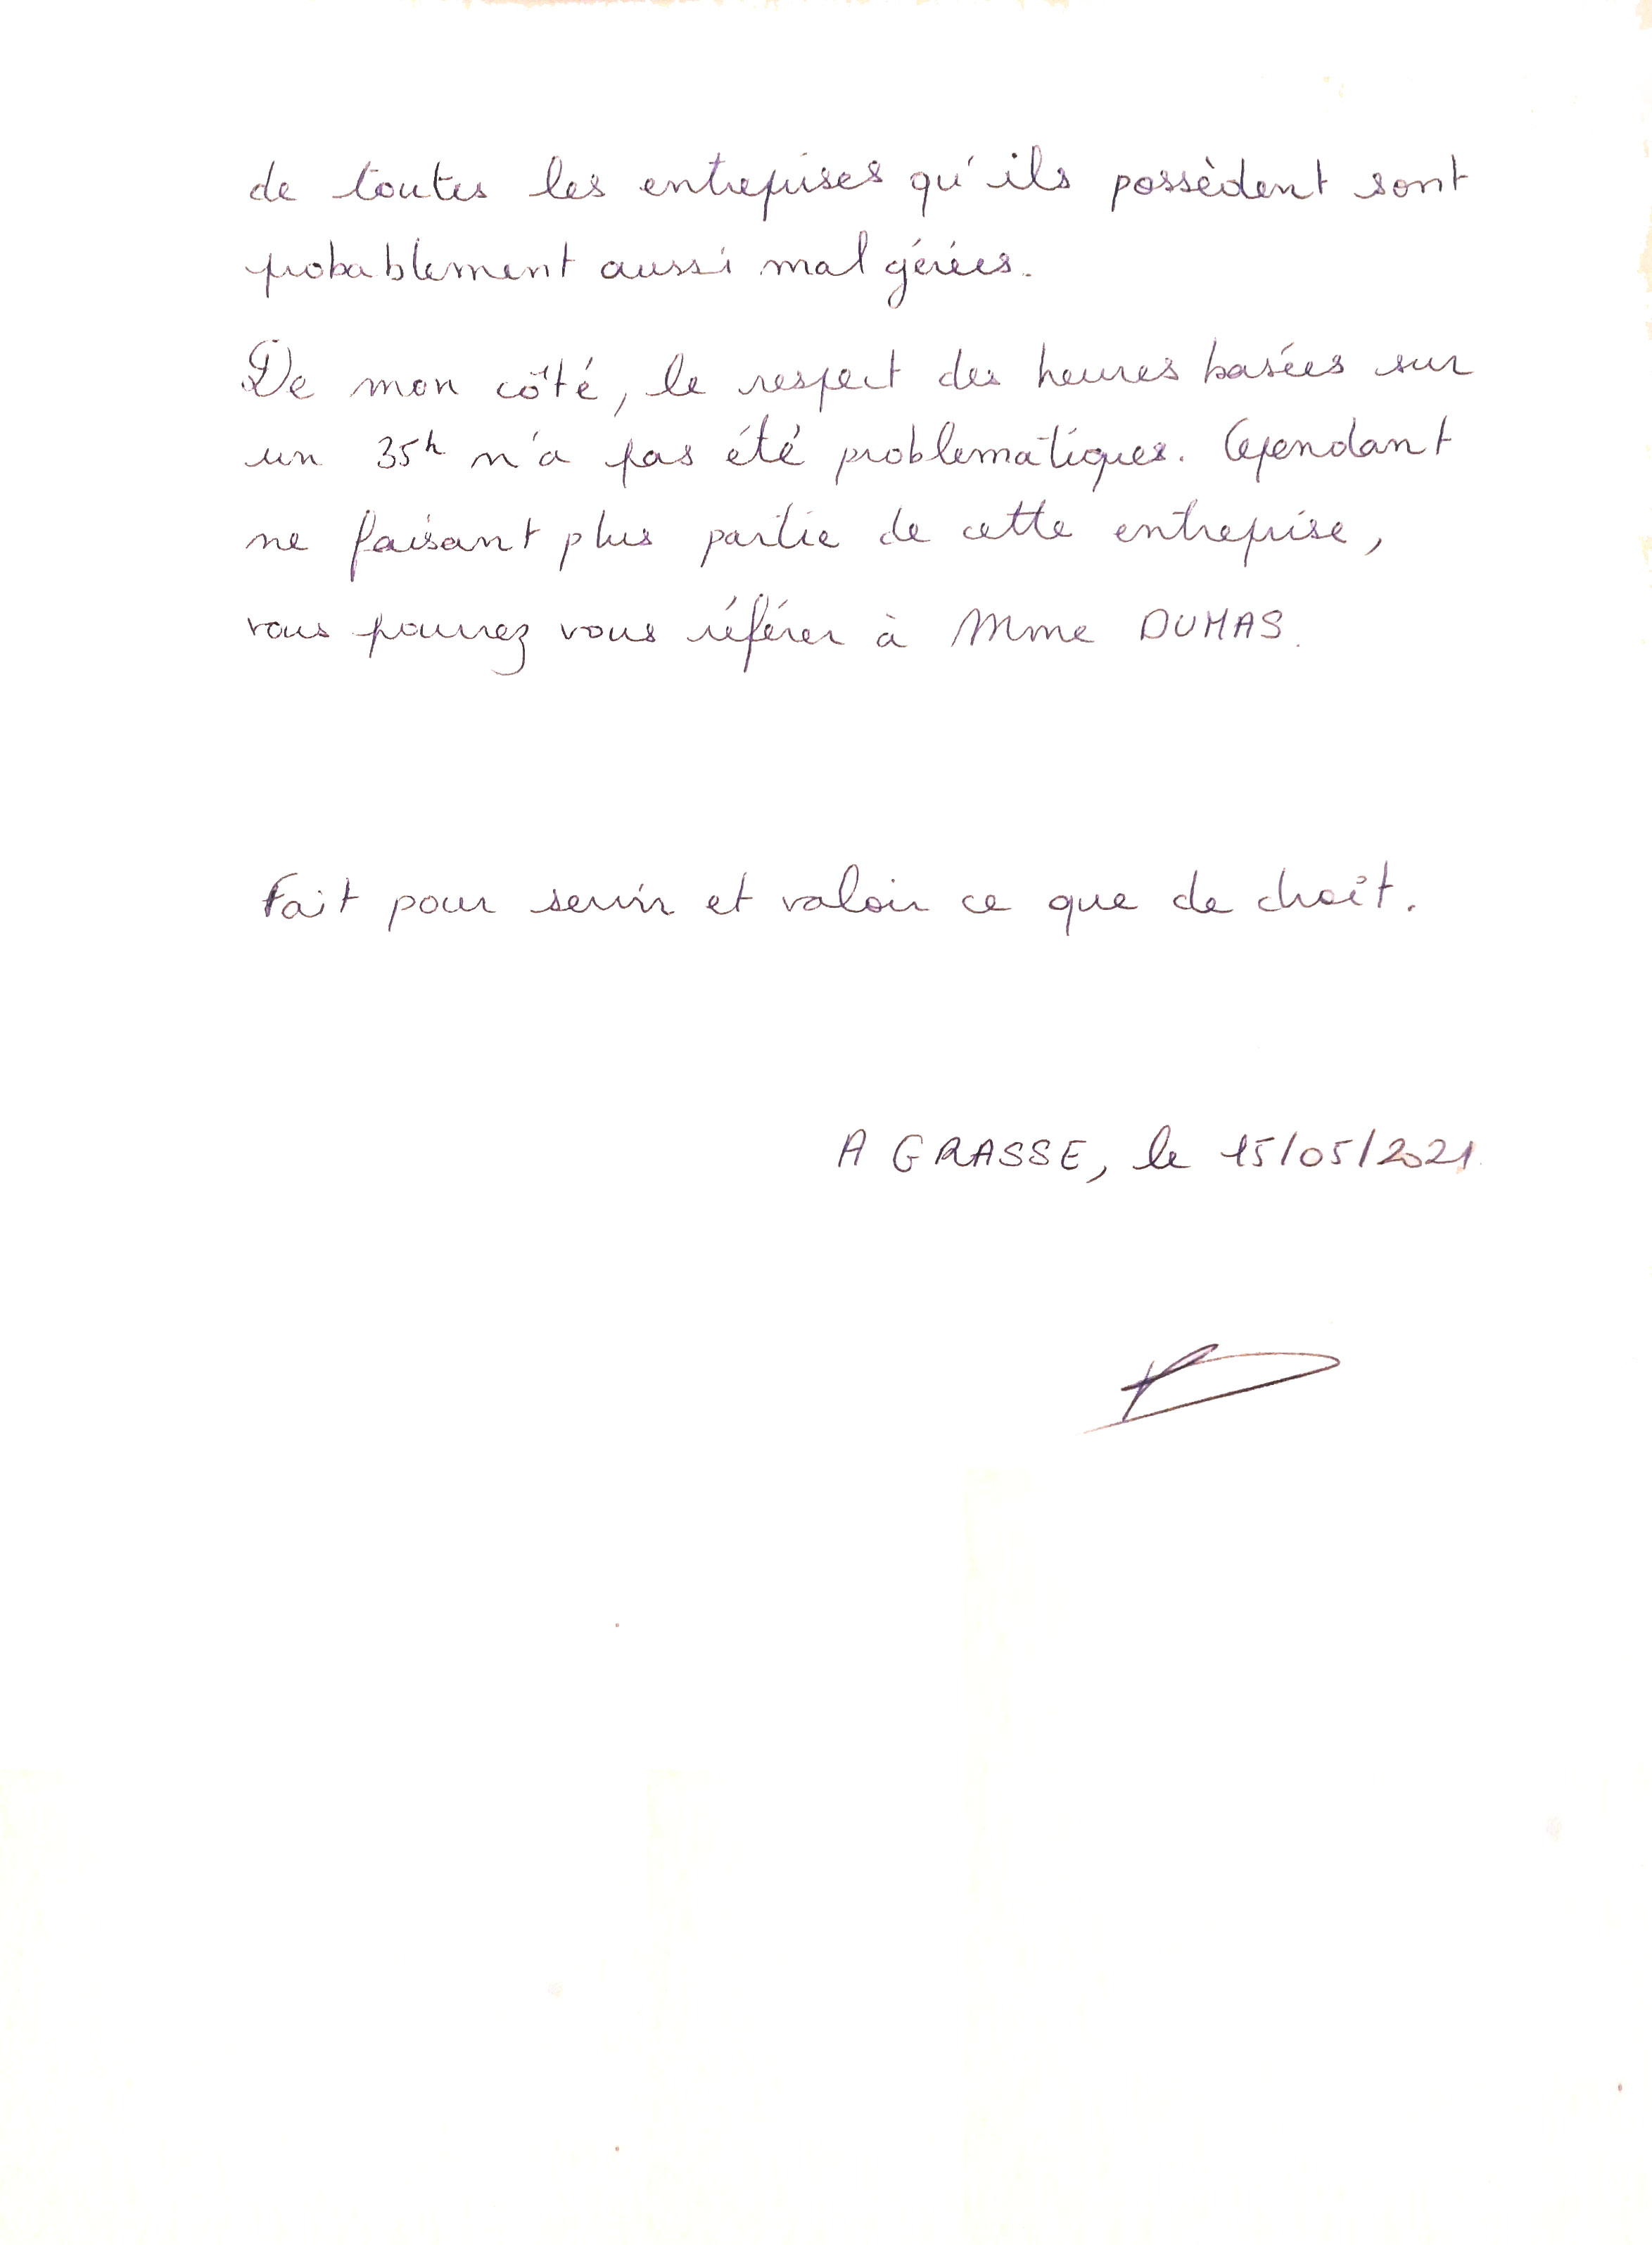 de toutes les entreprises qu'ils possèdent sont
probablement aussi mal gérées.
De mon côté, le respect des heures basées sur
un 35h n'a pas été problématiques. Cependant
ne faisant plus partie de cette entreprise,
vous pourrez vous référer à Mme DUMAS.
Fait pour servir et valoir ce que de droit.
A GRASSE, le 15/05/2021